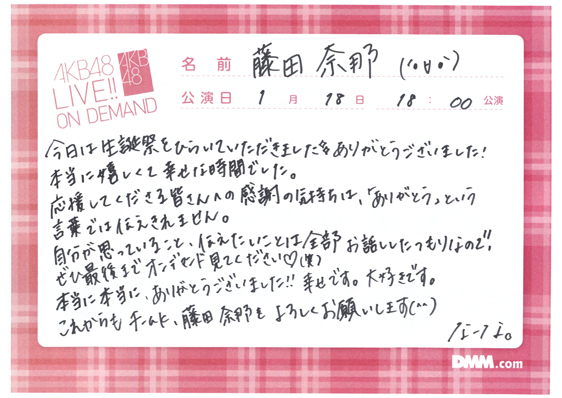 AKB48
LIVE!!
ON DEMAND
AKB
48
名前 藤田 奈那 (’o’ ∀ ’o’)
公演日 1月 18日 18:00 公演
今日は生誕祭をひらいていただきましたありがとうございました!
本当に嬉しくて幸せな時間でした。
応援してくださる皆さんへの感謝の気持ちは、「ありがとう」という
言葉では伝えきれません。
自分が思っていること、伝えたいことは全部お話ししたつもりなので、
ぜひ最後までオンデマンド見てください♡(笑)
本当に本当に、ありがとうございました!! 幸せです。大好きです。
これからもチームK、藤田奈那をよろしくお願いします(^^)
なーな。
DMM.com